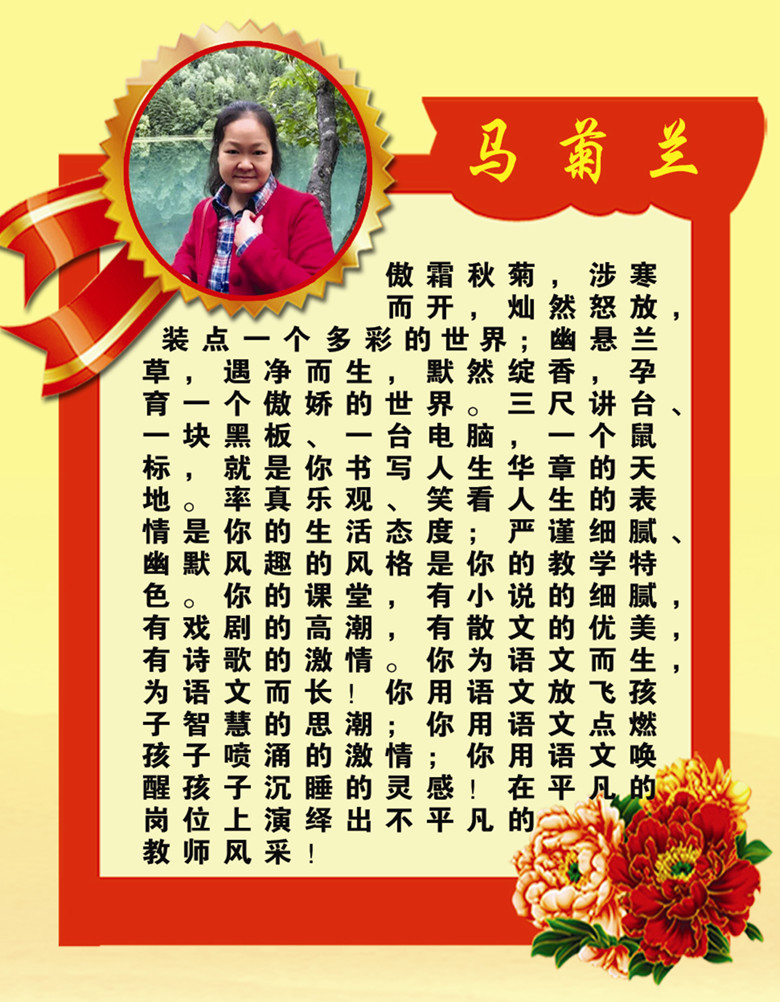 马菊兰
傲霜秋菊，涉寒
而开，灿然怒放，
装点一个多彩的世界；幽悬兰
草，遇净而生，默然绽香，孕
育一个傲娇的世界。三尺讲台、
一块黑板、一台电脑，一个鼠
标，就是你书写人生华章的天
地。率真乐观、笑看人生的表
情是你的生活态度；严谨细腻、
幽默风趣的风格是你的教学特
色。你的课堂，有小说的细腻，
有戏剧的高潮，有散文的优美，
有诗歌的激情。你为语文而生，
为语文而长！你用语文放飞孩
子智慧的思潮；你用语文点燃
孩子喷涌的激情；你用语文唤
醒孩子沉睡的灵感！在平凡的
岗位上演绎出不平凡的
教师风采！